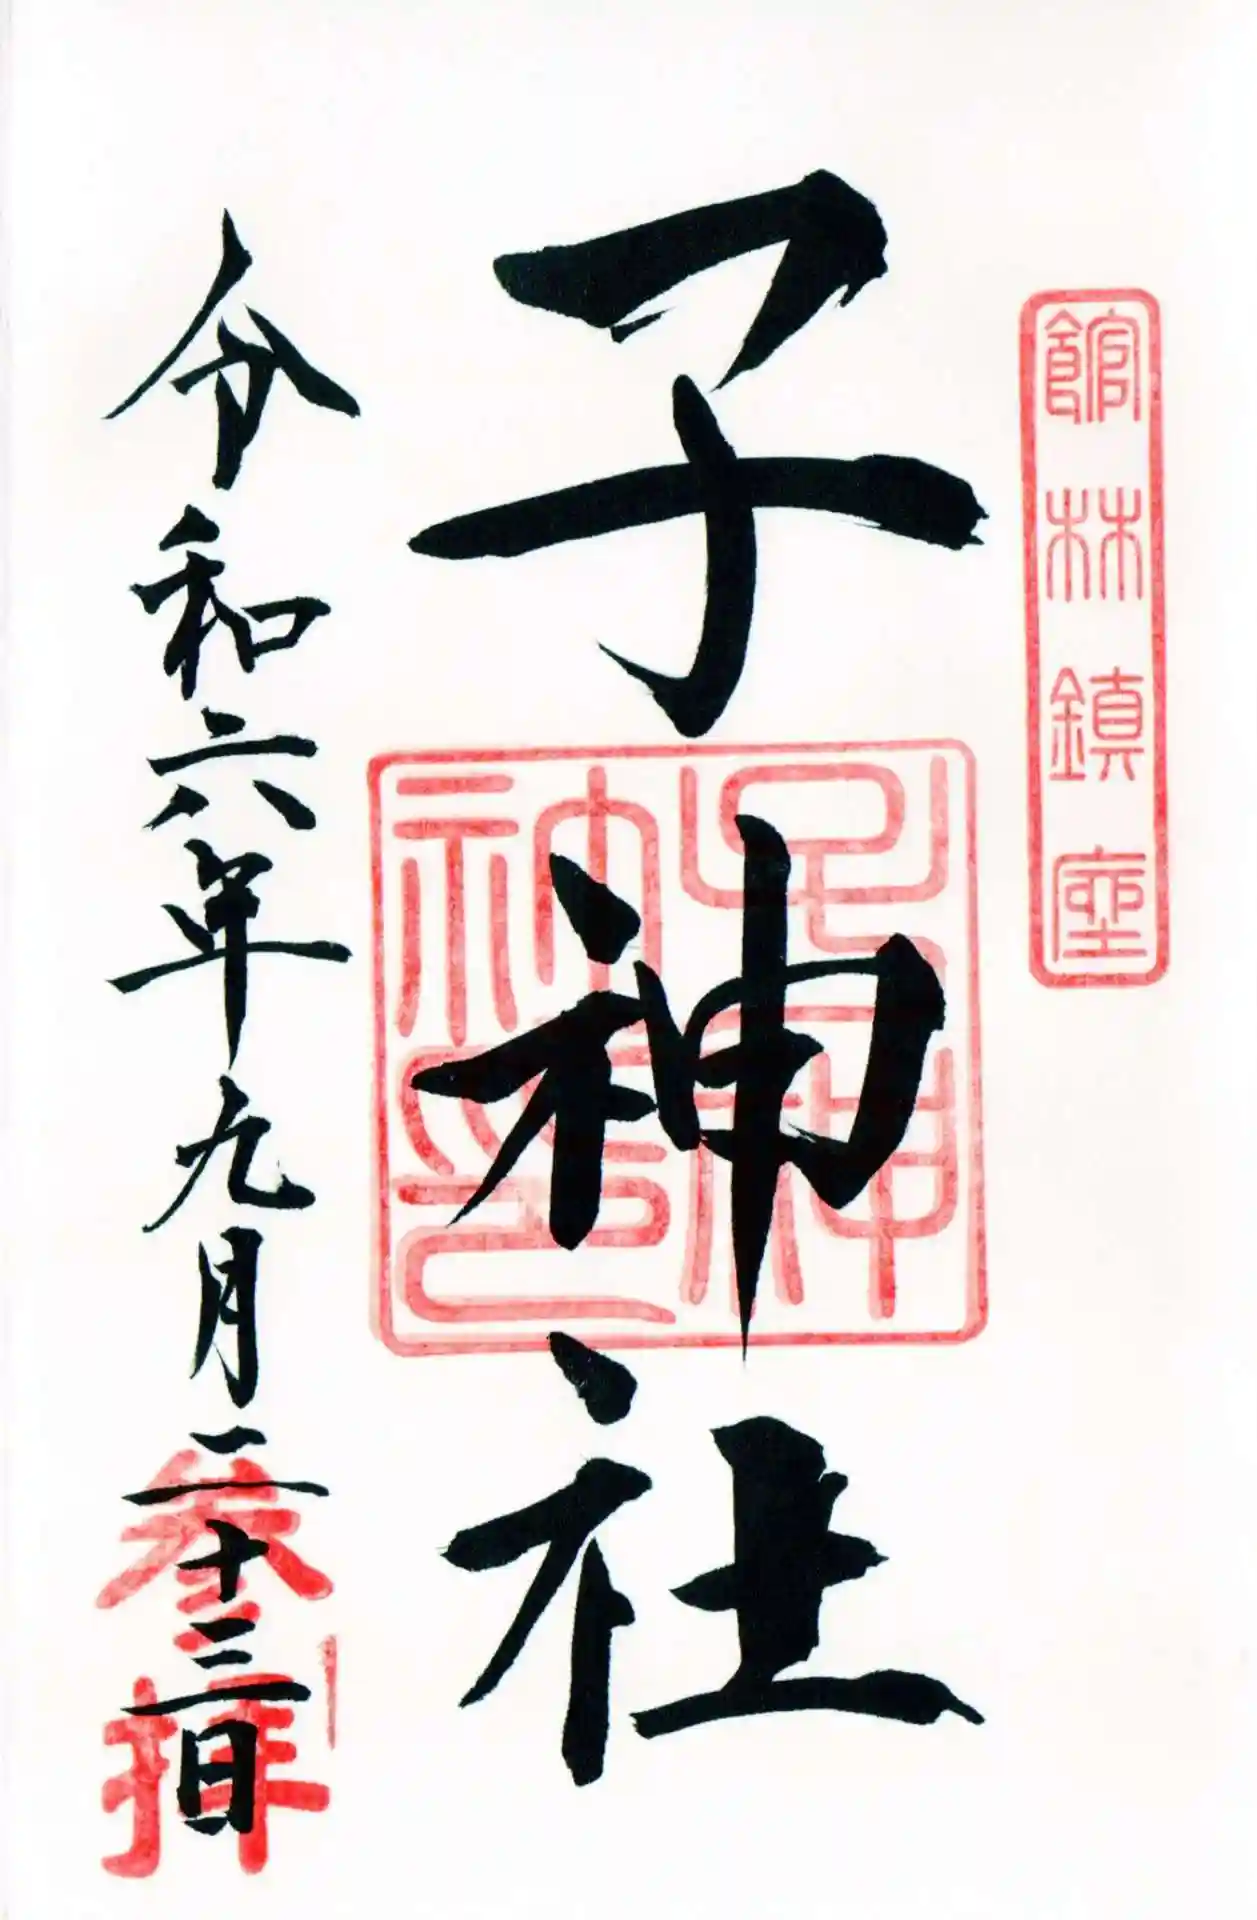 館林鎮座
子神社
令和六年九月二十三日
参拝